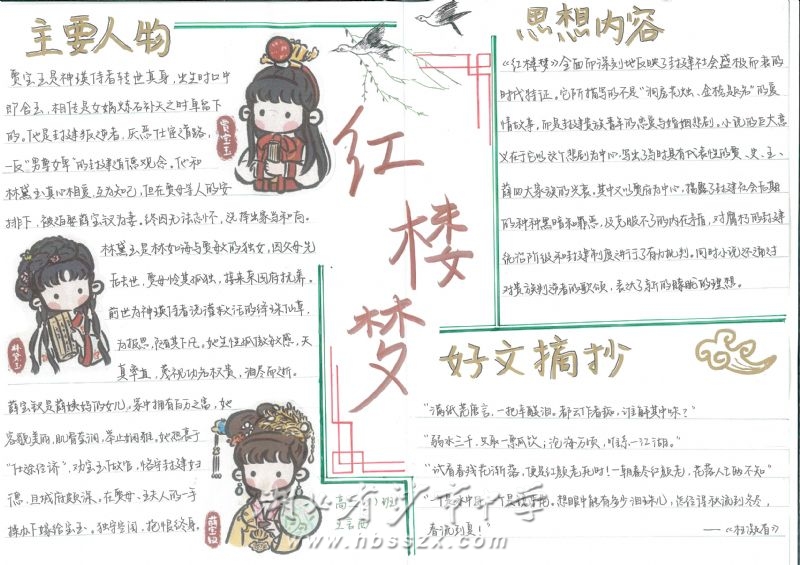 主要人物
贾宝玉是神瑛侍者转世真身，出生时口中
即含玉，相传是女娲炼石补天之时单留下
的。他是封建叛逆者，厌恶仕宦道路，
一反“男尊女卑”的封建道德观念。他和
林黛玉真心相爱，互为知己，但在贾母等人的安
排下，被迫娶薛宝钗为妻。终因无法忘怀，选择出家当和尚。
贾宝玉
林黛玉是林如海与贾敏的独女，因父母先
后去世，贾母怜其孤独，接来荣国府抚养。
前世为神瑛侍者浇灌救活的绛珠仙草，
为报恩，下凡。她生性孤傲敏感，天
真率直，蔑视功名权贵，泪尽而逝。
林黛玉
薛宝钗是薛姨妈的女儿，家中拥有百万之富，她
容貌美丽，肌骨莹润，举止娴雅。她热衷于
“仕途经济”，劝宝玉做官，恪守封建妇
德，且城府颇深，在贾母、王夫人的一手
操办下嫁给宝玉。独守空闺，抱恨终身。
薛宝钗
红
楼
梦
思想内容
《红楼梦》全面而深刻地反映了封建社会盛极而衰的
时代特征。它所描写的不是“洞房花烛、金榜题名”的爱
情故事，而是封建贵族青年的恋爱与婚姻悲剧。小说的巨大意
义在于它以这个悲剧为中心，写出了当时具有代表性的贾、史、王、
薛四大家族的兴衰，其中又以贾府为中心，揭露了封建社会后期
的种种黑暗和罪恶，及克服不了的内在矛盾，对腐朽的封建
统治阶级和封建制度进行了有力批判。同时小说还通过
对贵族叛逆者的歌颂，表达了新的朦胧的理想。
好文摘抄
“满纸荒唐言，一把辛酸泪。都云作者痴，谁解其中味？”
“弱水三千，只取一瓢饮；沧海万顷，唯系一江潮。”
“试看春残花渐落，便是红颜老死时！一朝春尽红颜老，花落人亡两不知”
想眼中能有多少泪珠儿，怎经得秋流到冬尽，
春流到夏！”
——《枉凝眉》
www.hbsszx.com